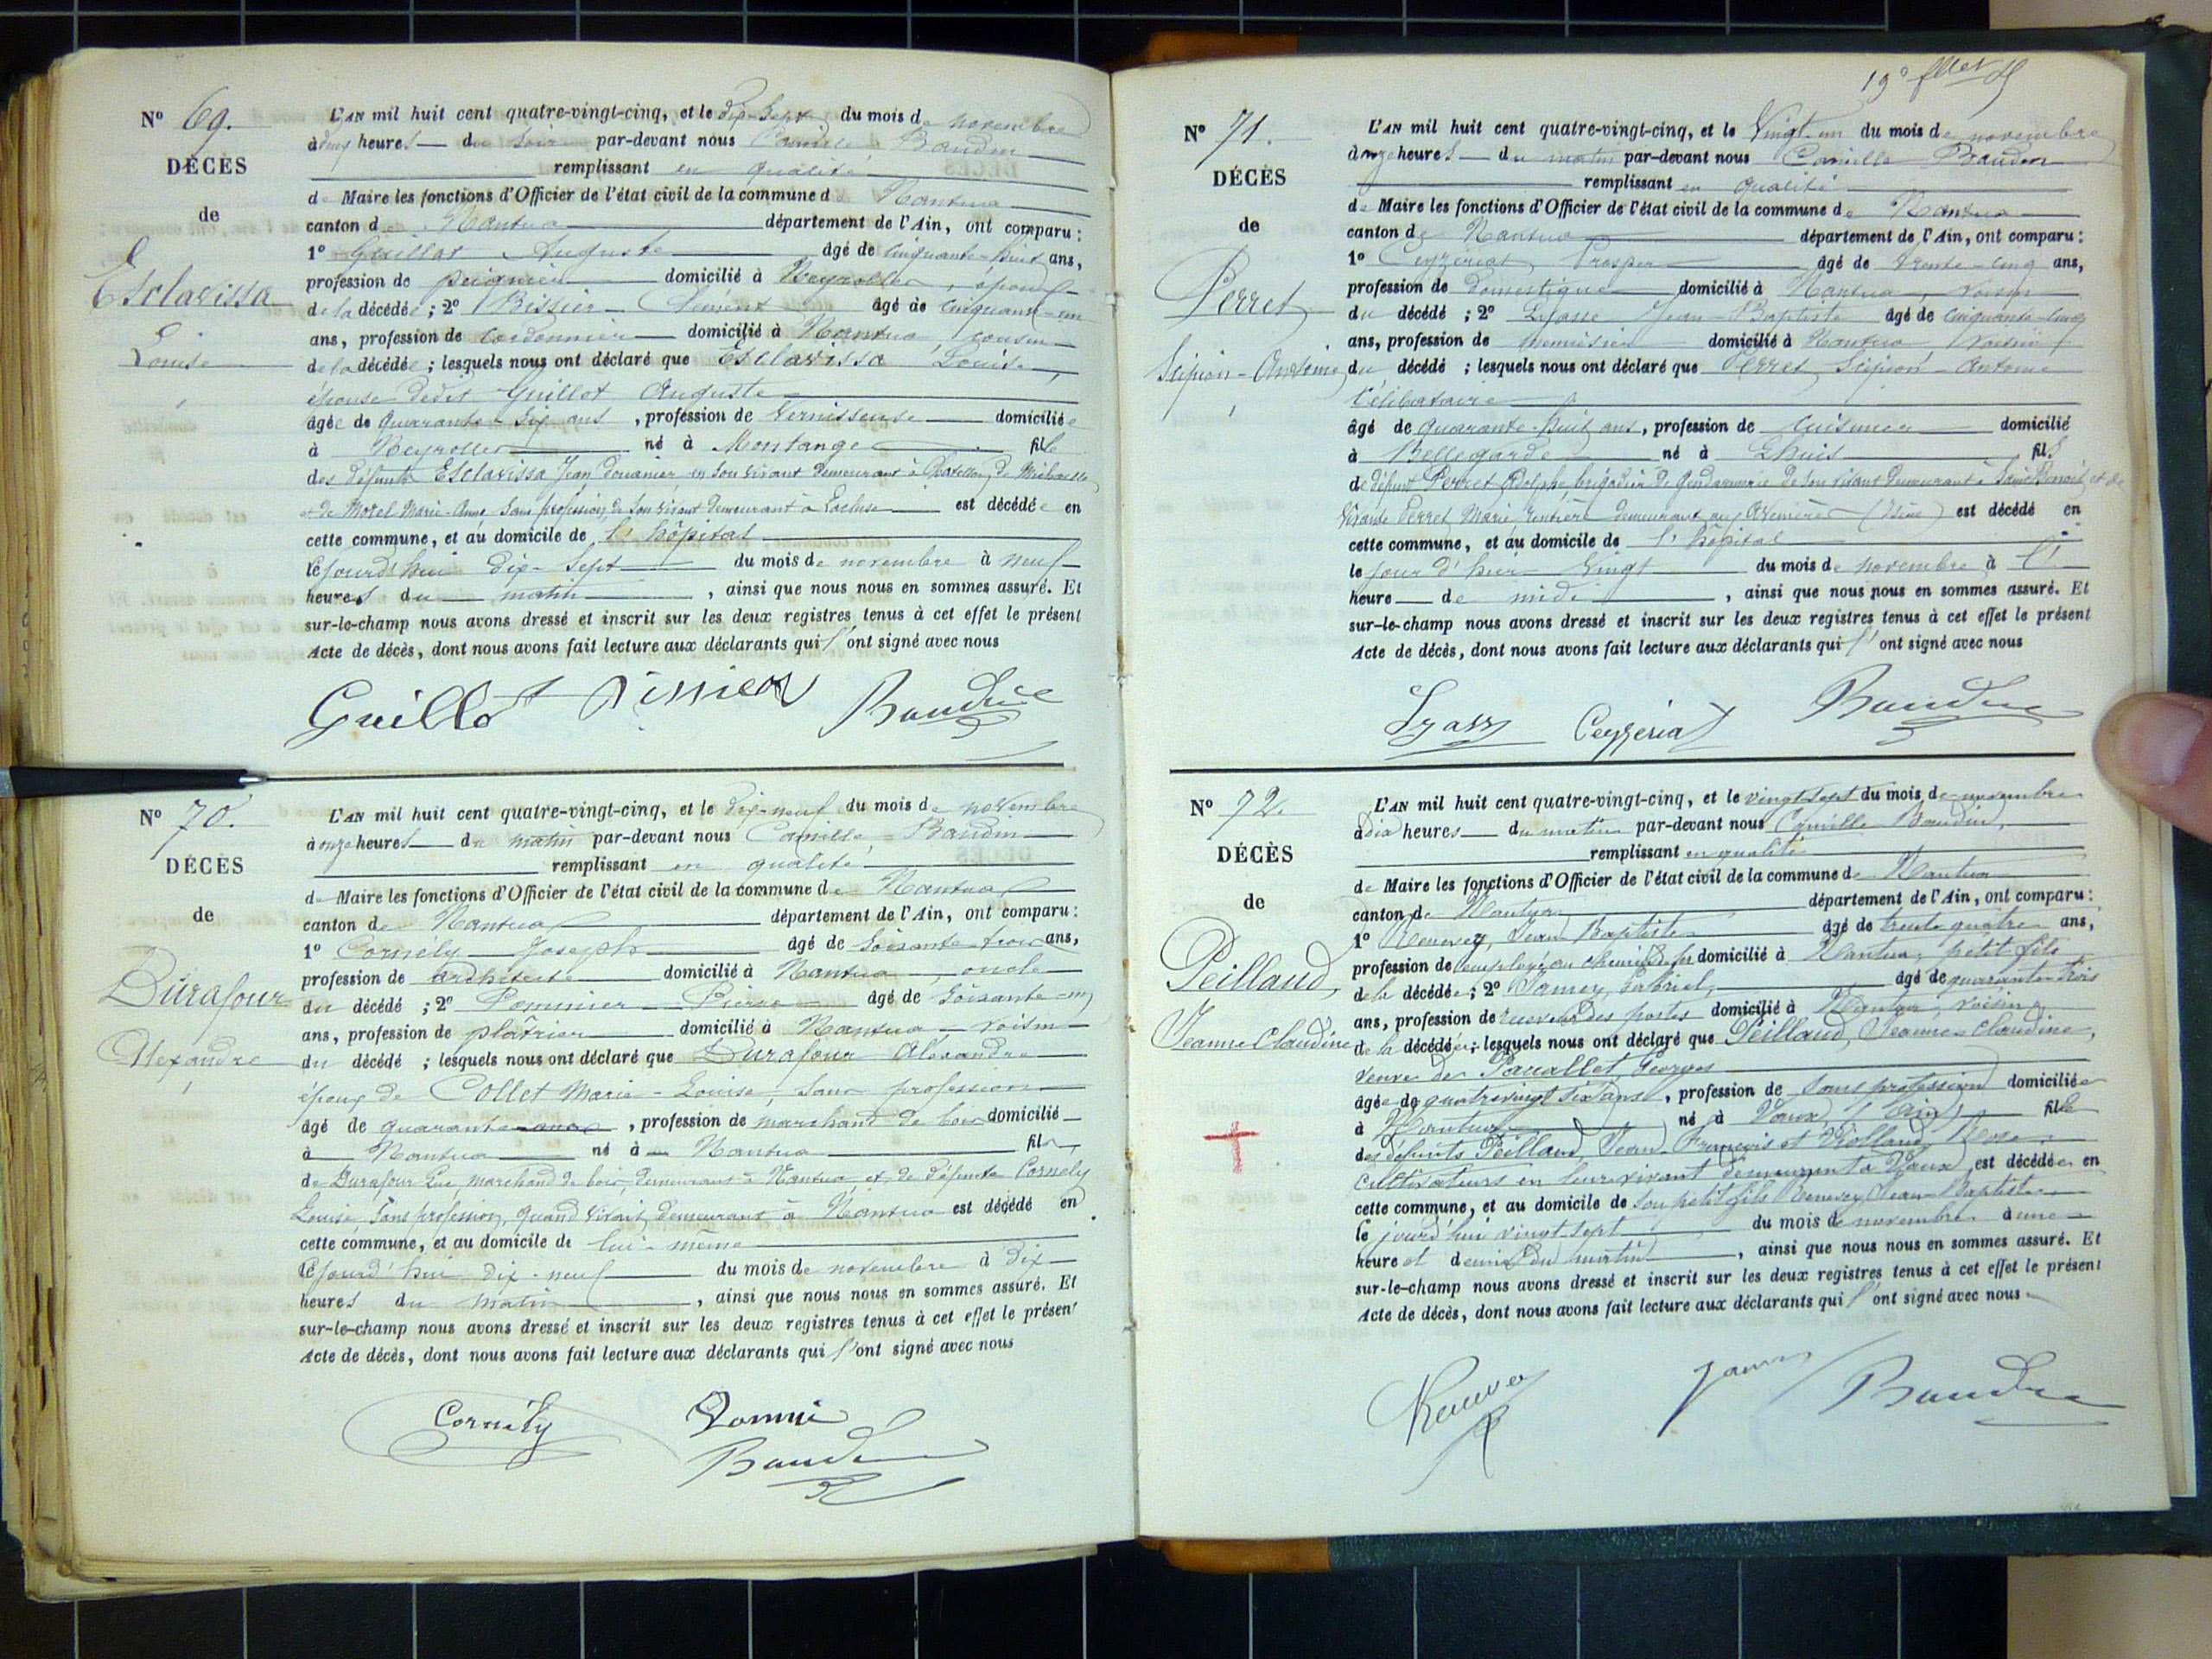 N° 69.
DÉCÈS
de
Esclavissa
Louise
L'AN mil huit cent quatre-vingt-cinq, et le dix-sept du mois de novembre
à deux heures du soir par-devant nous Camille Baudin
remplissant en qualité
de Maire les fonctions d'Officier de l'état civil de la commune de Nantua
canton de Nantua département de l'Ain, ont comparu :
1° Guillot Auguste âgé de cinquante-huit ans,
profession de peignier domicilié à Neyrolles, époux
de la décédée ; 2° Bissier Clément âgé de cinquante-un
ans, profession de cordonnier domicilié à Nantua, cousin
de la décédée ; lesquels nous ont déclaré que Esclavissa Louise,
épouse dudit Guillot Auguste
âgée de quarante-six ans, profession de vernisseuse domiciliée
à Neyrolles né à Montange fille
des défunts Esclavissa Jean douanier en son vivant demeurant à Chatillon de Michaille
et de Morel Marie-Anne sans profession, de son vivant demeurant à Lecluse est décédée en
cette commune, et au domicile de l'hôpital
le jourd'hui dix-sept du mois de novembre à neuf
heures du matin, ainsi que nous nous en sommes assuré. Et
sur-le-champ nous avons dressé et inscrit sur les deux registres tenus à cet effet le présent
Acte de décès, dont nous avons fait lecture aux déclarants qui l'ont signé avec nous
Guillot Bissier Baudin
N° 70.
DÉCÈS
de
Durafour
Alexandre
L'AN mil huit cent quatre-vingt-cinq, et le dix-neuf du mois de novembre
à onze heures du matin par-devant nous Camille Baudin
remplissant en qualité
de Maire les fonctions d'Officier de l'état civil de la commune de Nantua
canton de Nantua département de l'Ain, ont comparu :
1° Cornely Joseph âgé de soixante-trois ans,
profession de architecte domicilié à Nantua, oncle
du décédé ; 2° Pommier Pierre âgé de soixante-un
ans, profession de plâtrier domicilié à Nantua, voisin
du décédé ; lesquels nous ont déclaré que Durafour Alexandre
époux de Collet Marie-Louise, sans profession
âgé de quarante ans, profession de marchand de bois domicilié
à Nantua né à Nantua fils
de Durafour Luc, marchand de bois, demeurant à Nantua, et de défunte Cornely
Louise, sans profession, quand vivait, demeurant à Nantua est décédé en
cette commune, et au domicile de lui-même
le jourd'hui dix-neuf du mois de novembre à dix
heures du matin, ainsi que nous nous en sommes assuré. Et
sur-le-champ nous avons dressé et inscrit sur les deux registres tenus à cet effet le présent
Acte de décès, dont nous avons fait lecture aux déclarants qui l'ont signé avec nous
Cornély Pommié
Baudin
19e
N° 71.
DÉCÈS
de
Perret
Scipion-Antoine
L'AN mil huit cent quatre-vingt-cinq, et le vingt-un du mois de novembre
à onze heures du matin par-devant nous Camille Baudin
remplissant en qualité
de Maire les fonctions d'Officier de l'état civil de la commune de Nantua
canton de Nantua département de l'Ain, ont comparu :
1° Ceyzériat Prosper âgé de trente-cinq ans,
profession de domestique domicilié à Nantua, voisin
du décédé ; 2° Jean-Baptiste âgé de cinquante-cinq
ans, profession de menuisier domicilié à Nantua, voisin
du décédé ; lesquels nous ont déclaré que Perret Scipion-Antoine
Célibataire
âgé de quarante-huit ans, profession de cuisinier domicilié
à Bellegarde né à Lhuis fils
de défunt Perret Adolphe, brigadier de gendarmerie de son vivant demeurant à Saint Benoit, et de
vivante Perret Marie, rentière demeurant aux Avenières (Isère) est décédé en
cette commune, et au domicile de l'hôpital
le jour d'hier vingt du mois de novembre à l'
heure de midi, ainsi que nous nous en sommes assuré. Et
sur-le-champ nous avons dressé et inscrit sur les deux registres tenus à cet effet le présent
Acte de décès, dont nous avons fait lecture aux déclarants qui l'ont signé avec nous
Ceyzeriat Baudin
N° 72.
DÉCÈS
de
Peilland,
Jeanne Claudine
L'AN mil huit cent quatre-vingt-cinq, et le vingt sept du mois de novembre
à dix heures du matin par-devant nous Camille Baudin,
remplissant en qualité
de Maire les fonctions d'Officier de l'état civil de la commune de Nantua
canton de Nantua département de l'Ain, ont comparu :
1° Jean Baptiste âgé de trente quatre ans,
profession de employé au chemin de fer domicilié à Nantua, petit fils
de la décédée ; 2° Gabriel, âgé de quarante trois
ans, profession de receveur des postes domicilié à Nantua, voisin
de la décédée ; lesquels nous ont déclaré que Peilland, Jeanne Claudine,
veuve de Georges
âgée de quatrevingt six ans, profession de sans profession domiciliée
à Nantua né à Vaux, Ain, fille
des défunts Peilland, Jean François et Rolland Rose,
cultivateurs en leur vivant demeurant à Vaux, est décédée en
cette commune, et au domicile de son petit fils Jean-Baptiste
le jourd'hui vingt sept du mois de novembre à une
heure et demie du matin, ainsi que nous nous en sommes assuré. Et
sur-le-champ nous avons dressé et inscrit sur les deux registres tenus à cet effet le présent
Acte de décès, dont nous avons fait lecture aux déclarants qui l'ont signé avec nous
Baudin